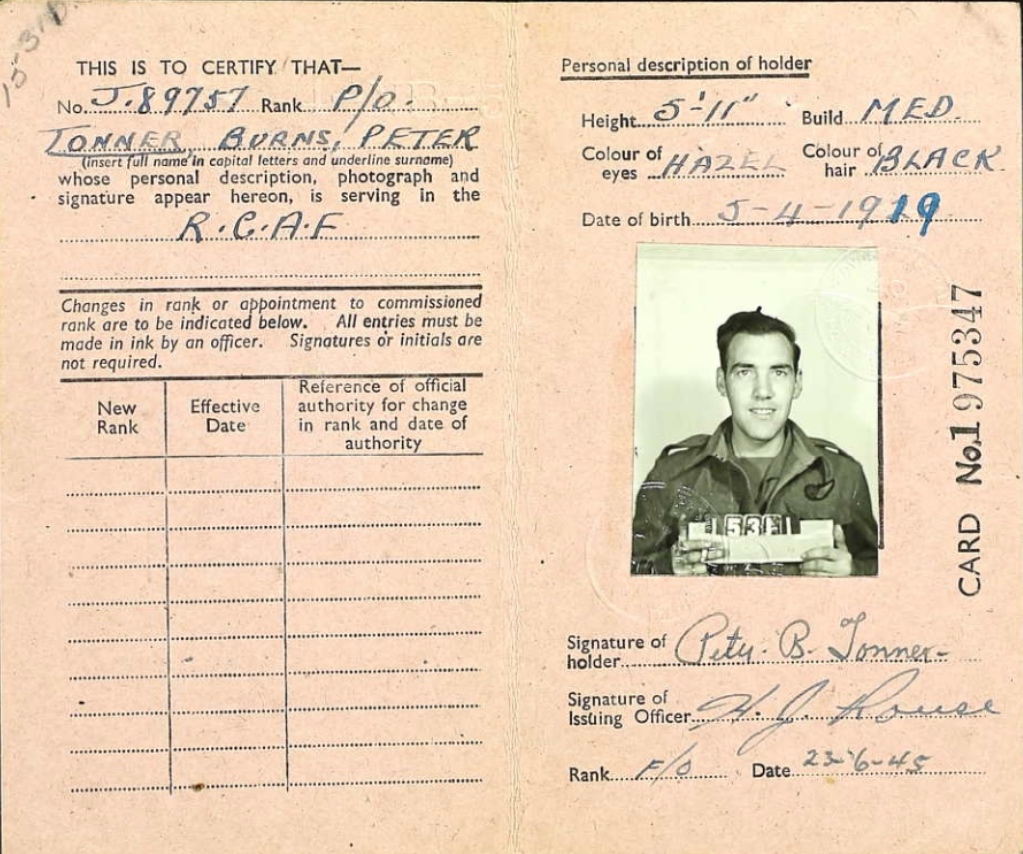 THIS IS TO CERTIFY THAT—
No. J.89757 Rank P/O.
TONNER, BURNS, PETER
(insert full name in capital letters and underline surname)
whose personal description, photograph and
signature appear hereon, is serving in the
R.C.A.F
Changes in rank or appointment to commissioned
rank are to be indicated below. All entries must be
made in ink by an officer. Signatures or initials are
not required.
New Rank
Effective Date
Reference of official authority for change in rank and date of authority
Personal description of holder
Height 5'-11" Build MED.
Colour of eyes HAZEL Colour of hair BLACK
Date of birth 5-4-1919
CARD No. 1975347
Signature of holder Peter B. Tonner
Signature of Issuing Officer H. J. Rouse
Rank F/O Date 23-6-45